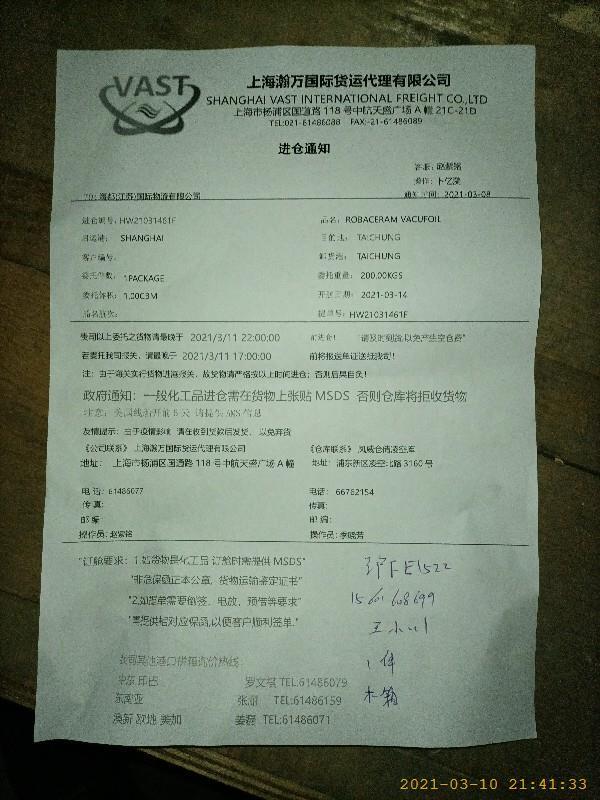 VAST
上海瀚万国际货运代理有限公司
SHANGHAI VAST INTERNATIONAL FREIGHT CO.,LTD
上海市杨浦区国通路 118 号中航天盛广场 A 幢 21C-21D
TEL:021-61486088 FAX:-21-61486089
进仓通知
客服: 赵紫铭
操作: 卜亿滢
TO: 海都(江苏)国际物流有限公司 通知时间: 2021-03-08
进仓编号: HW21031461F 品名: ROBACERAM VACUFOIL
启运港: SHANGHAI 目的地: TAICHUNG
客户编号: 卸货港: TAICHUNG
委托件数: 1PACKAGE 委托重量: 200.00KGS
委托体积: 1.00CBM 开航日期: 2021-03-14
船名航次: 提单号: HW21031461F
贵司以上委托之货物请最晚于 2021/3/11 22:00:00 前进仓! "请及时到货,以免产生空仓费"
若委托我司报关, 请最晚于 2021/3/11 17:00:00 前将报送单证送抵我司!
注: 由于海关实行货物进港报关, 故货物请严格按以上时间进仓; 否则后果自负!
政府通知: 一般化工品进仓需在货物上张贴 MSDS 否则仓库将拒收货物
注意: 美国线船开前 5 天 请提供 AMS 信息
友情提示: 由于疫情影响 请在收到货款后发货, 以免弃货
《公司联系》 上海瀚万国际货运代理有限公司 《仓库联系》 凤威仓储凌空库
地址: 上海市杨浦区国通路 118 号中航天盛广场 A 幢 地址: 浦东新区凌空北路 3160 号
电 话: 61486077 电话: 66762154
传 真: 传真:
邮 编: 邮 编:
操作员: 赵紫铭 操作员: 李晓芳
"订舱要求: 1.如货物是化工品 订舱时需提供 MSDS"
"非危保函正本公章, 货物运输鉴定证书"
"2.如提单需要倒签、电放、预借等要求"
"需提供相对应保函,以便客户顺利签单."
沪FE1522
15601608699
王小川
1件
木箱
我司其他港口拼箱询价热线:
中东 印巴 罗文祺 TEL:61486079
东南亚 张丽 TEL:61486159
澳新 欧地 美加 姜磊 TEL:61486071
2021-03-10 21:41:33